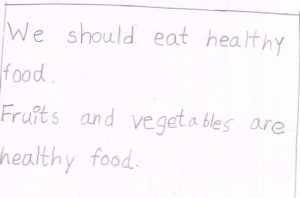 We should eat healthy
food.
Fruits and vegetables are
healthy food.